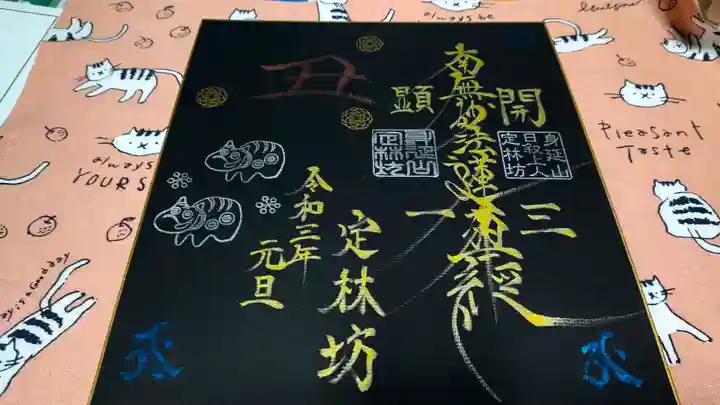 開
三
南無妙法蓮華経
身延山
日叡上人
定林坊
顕
一
身延山
定林坊
定林坊
令和三年
元旦
丑
always be
YOURS
always be
Pleasant
Taste